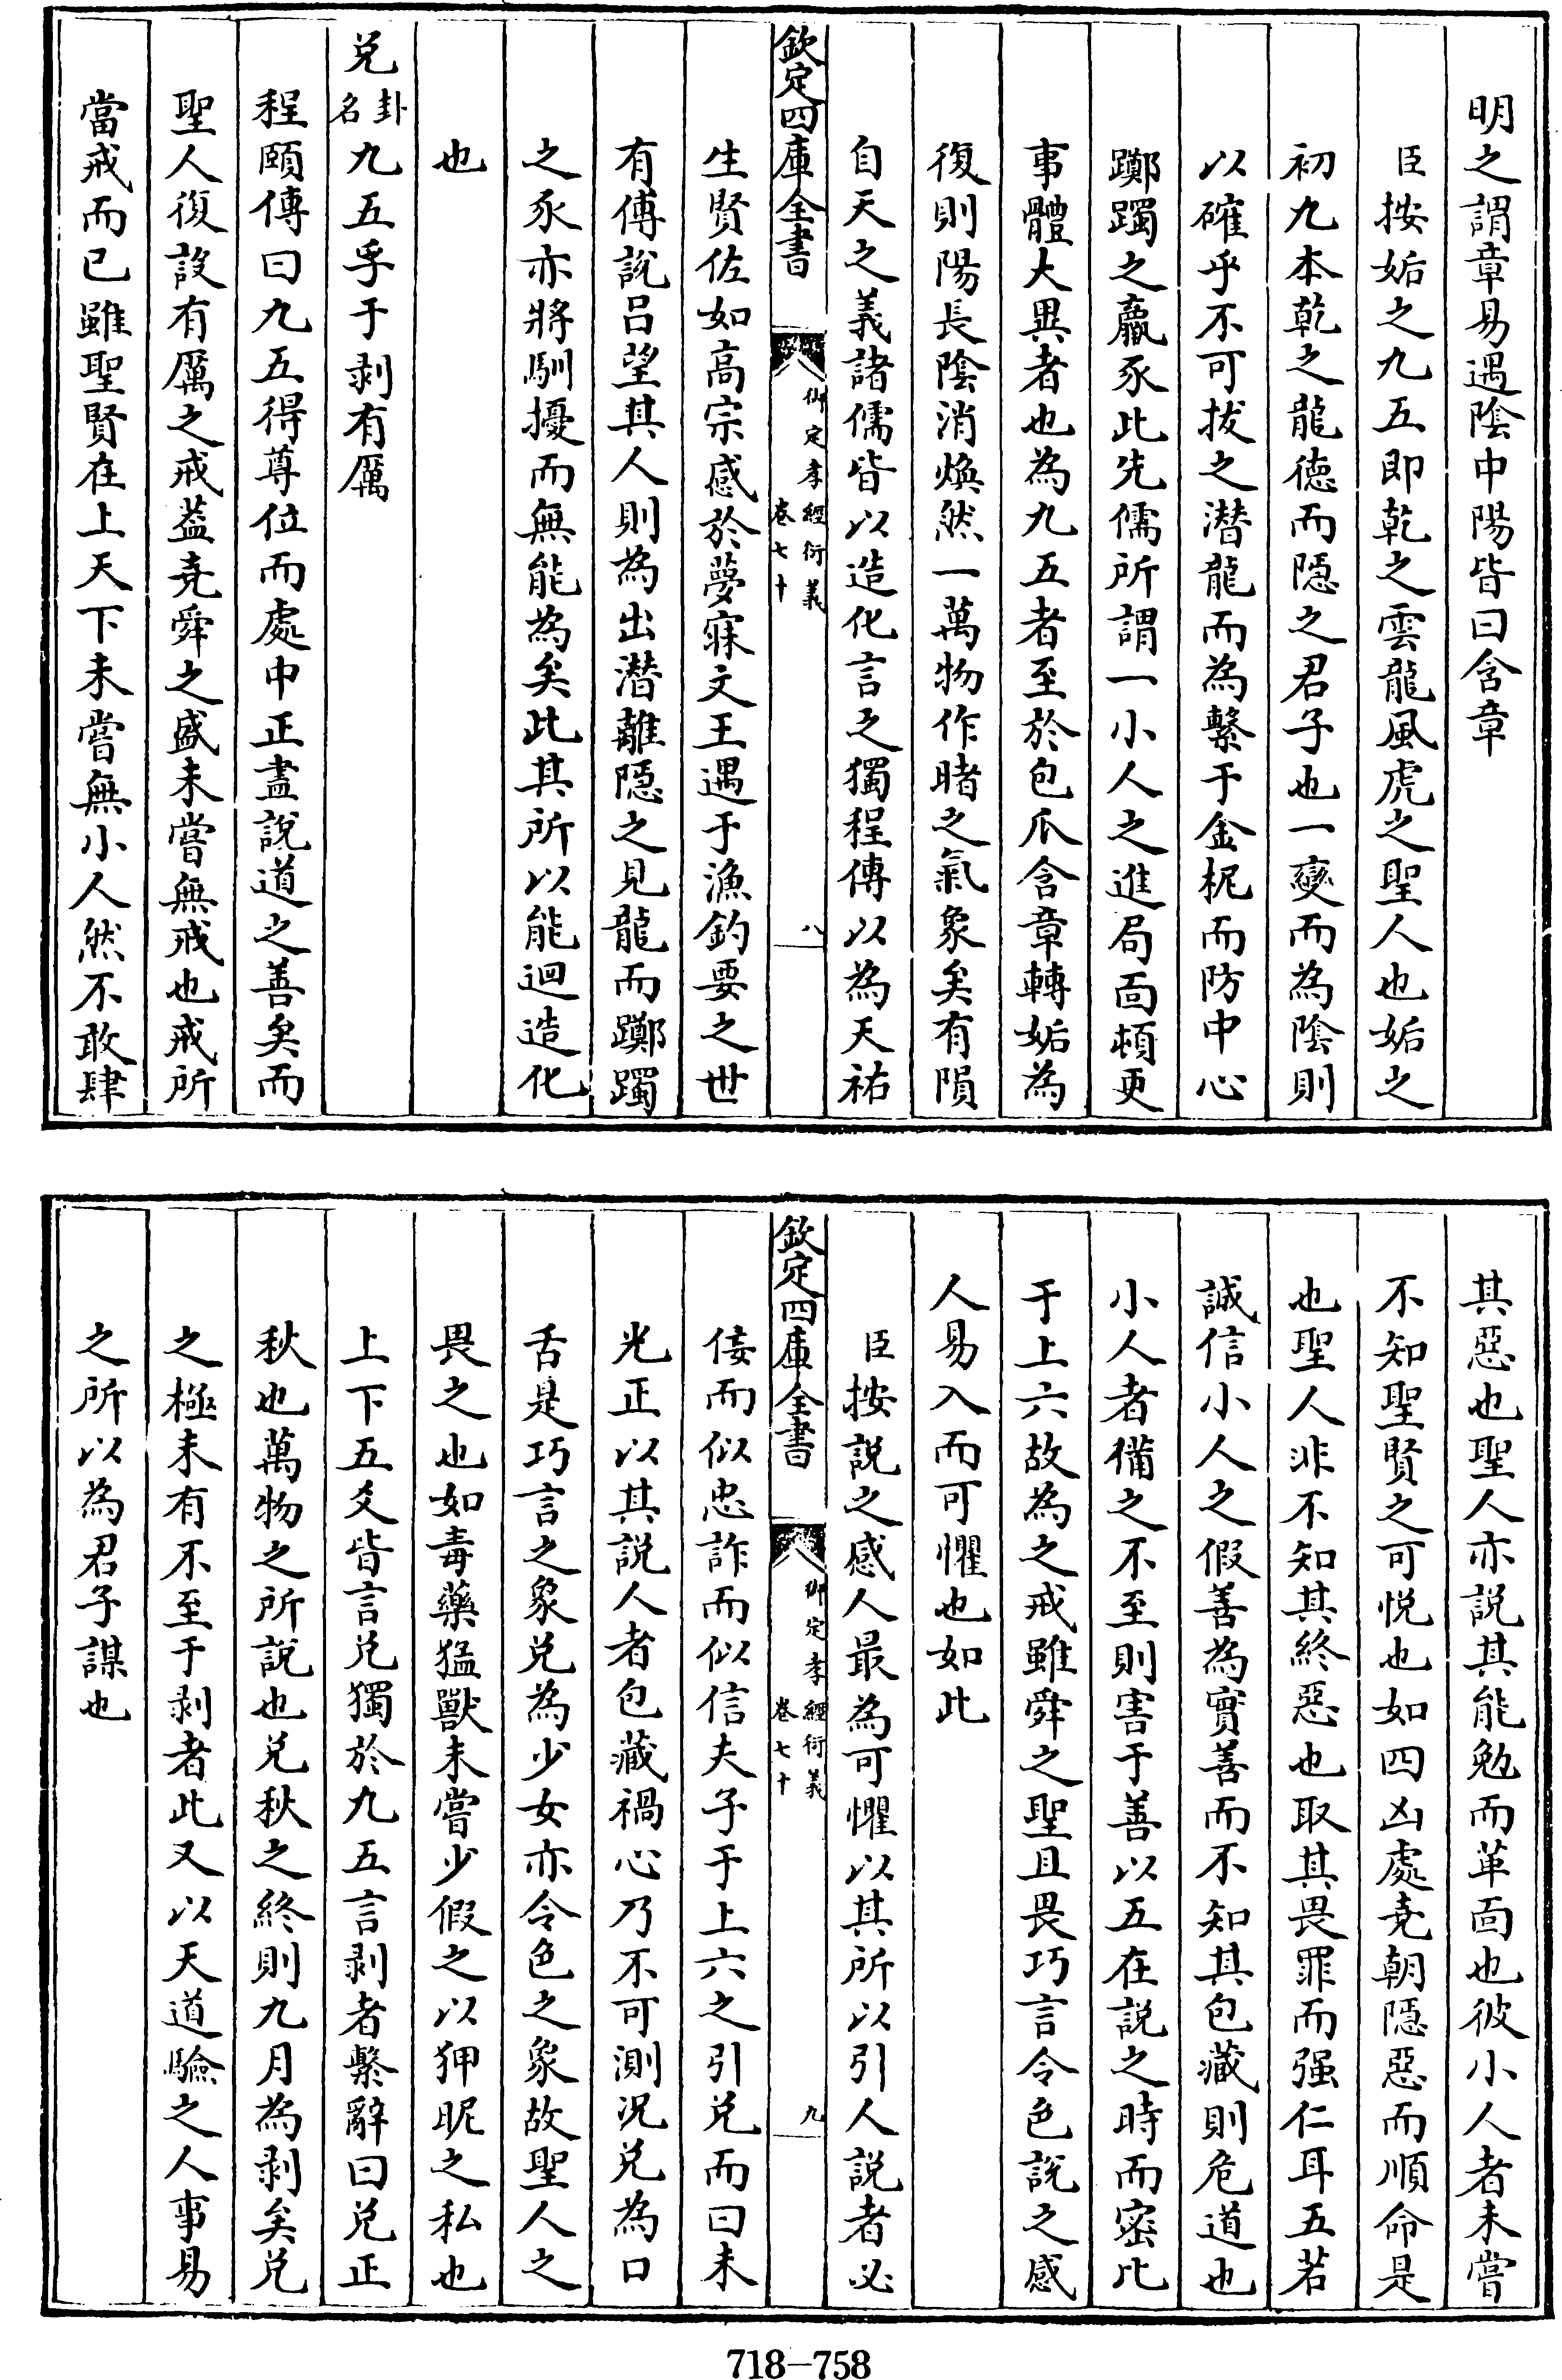 明之謂章易遇陰中陽皆曰含章
臣按姤之九五即乾之雲龍風虎之聖人也姤之
初九本乾之龍德而隱之君子也一變而為陰則
以確乎不可拔之潛龍而為繫于金柅而防中心
躑躅之羸豕此先儒所謂一小人之進局面頓更
事體大異者也為九五者至於包瓜含章轉姤為
復則陽長陰消煥然一萬物作睹之氣象矣有隕
自天之義諸儒皆以造化言之獨程傳以為天祐
欽定四庫全書
御定孝經衍義
卷七十
八
生賢佐如高宗感於夢寐文王遇于漁釣要之世
有傅說呂望其人則為出潛離隱之見龍而躑躅
之豕亦將馴擾而無能為矣此其所以能迴造化
也
兌卦名九五孚于剥有厲
程頤傳曰九五得尊位而處中正盡說道之善矣而
聖人復設有厲之戒葢堯舜之盛未嘗無戒也戒所
當戒而已雖聖賢在上天下未嘗無小人然不敢肆
其惡也聖人亦說其能勉而革面也彼小人者未嘗
不知聖賢之可悦也如四凶處堯朝隱惡而順命是
也聖人非不知其終惡也取其畏罪而强仁耳五若
誠信小人之假善為實善而不知其包藏則危道也
小人者備之不至則害于善以五在說之時而密比
于上六故為之戒雖舜之聖且畏巧言令色說之感
人易入而可懼也如此
臣按說之感人最為可懼以其所以引人說者必
欽定四庫全書
御定孝經衍義
卷七十
九
佞而似忠詐而似信夫子于上六之引兌而曰未
光正以其說人者包藏禍心乃不可測況兌為口
舌是巧言之象兌為少女亦令色之象故聖人之
畏之也如毒藥猛獸未嘗少假之以狎昵之私也
上下五爻皆言兌獨於九五言剥者繫辭曰兌正
秋也萬物之所說也兌秋之終則九月為剥矣兌
之極未有不至于剥者此又以天道驗之人事易
之所以為君子謀也
718-758